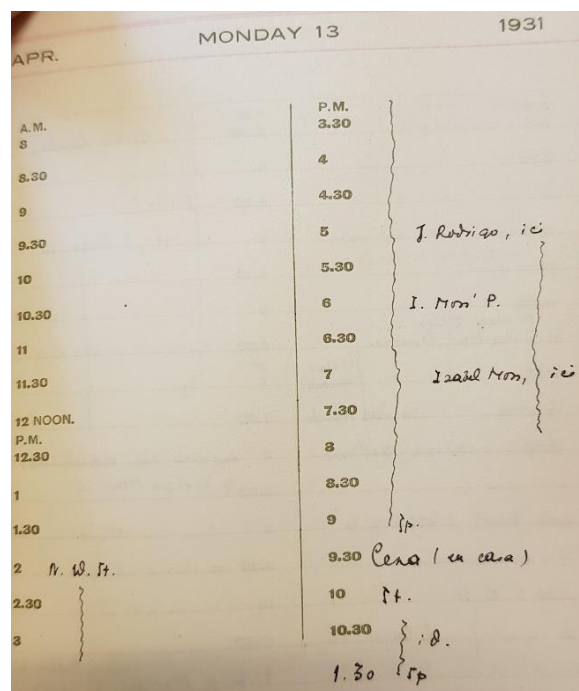 APR. MONDAY 13 1931
A.M.
8
8.30
9
9.30
10
10.30
11
11.30
12 NOON.
P.M.
12.30
1
1.30
2 N. W. St.
2.30
3
P.M.
3.30
4
4.30
5 J. Rodrigo, ici
5.30
6 I. P.
6.30
7 Isabel ici
7.30
8
8.30
9 Sp.
9.30 Cena (en casa)
10 St.
10.30 id.
1.30 Sp